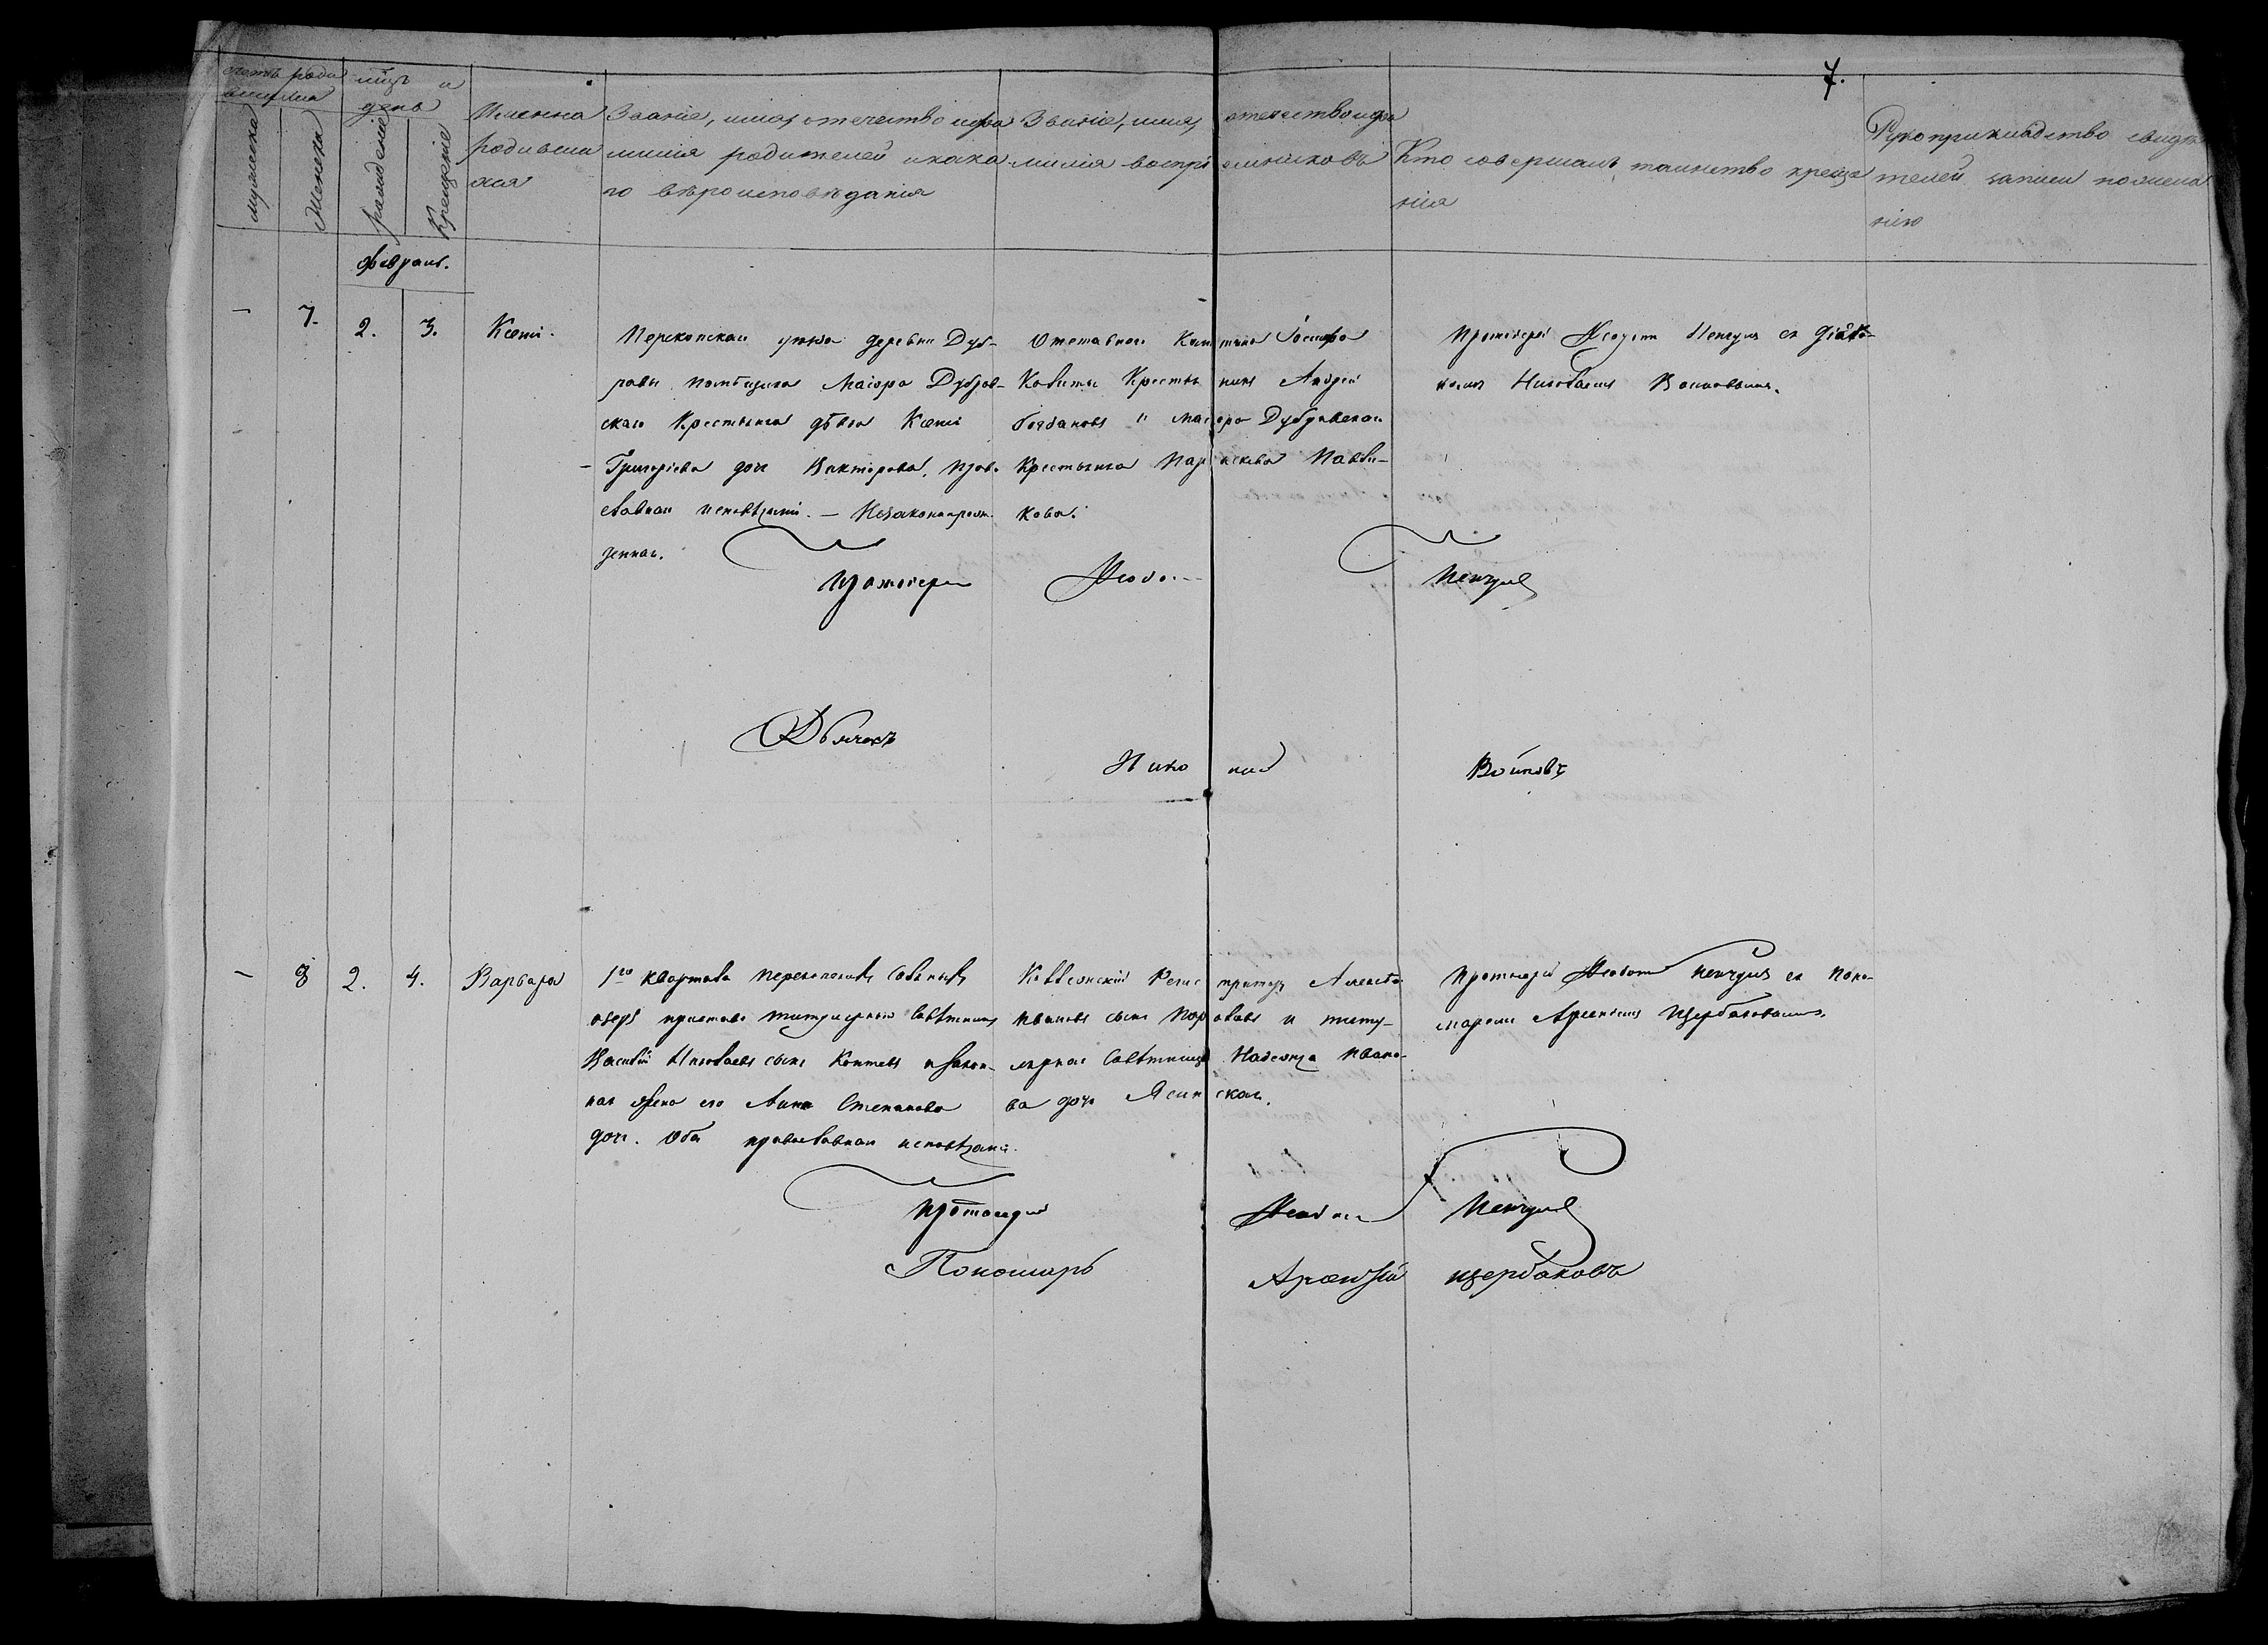 7.
счетъ роди
вшихся
мужеска
женска
мѣцъ и
день
рожденіе
Крещеніе
Имена
родивши
хся
Званіе, имя, отечество и фа
милія родителей и како
го вѣроисповѣданія
Званіе, имя, отечество и фа
милія воспріемниковъ
Кто совершалъ таинство креще
нія
Рукоприкладство свидѣ
телей записи по жела
нію
Февраль.
— 7. 2. 3. Ксенія.
Перекопскаго уѣзда деревни Дуб-
равы помѣщика Маіора Дубров-
скаго Крестьянка дѣвка Ксенія
Григорієва дочь Викторова, право
славнаго исповѣданія. — Незаконнорож
денная.
Отставнаго Капитана Іосифа
Крестьянинъ Андрей
Богдановъ и маіора Дубровскаго
Крестьянка Параскева Павли-
кова.
Протоіерей Пенчулъ съ Дьяч-
комъ Николаемъ Воиновымъ.
Протоіерей Пенчулъ
Дьячокъ
Николай Воиновъ
— 8 2. 4. Варвара
1го квартала Перекопскихъ Соляныхъ
озеръ приставъ титулярный Совѣтникъ
Василій Николаевъ сынъ Коптевъ и закон-
ная жена его Анна Степанова
дочь. Оба православнаго исповѣданія.
Коллежскій Регистраторъ
Ивановъ сынъ и титу-
лярная Совѣтница Надежда Ивано-
ва дочь Ясинская.
Протоіерей Пенчулъ съ Поно-
маремъ Арсеніемъ Щербаковымъ.
Протоіерей Пенчулъ
Пономарь Арсеній Щербаковъ